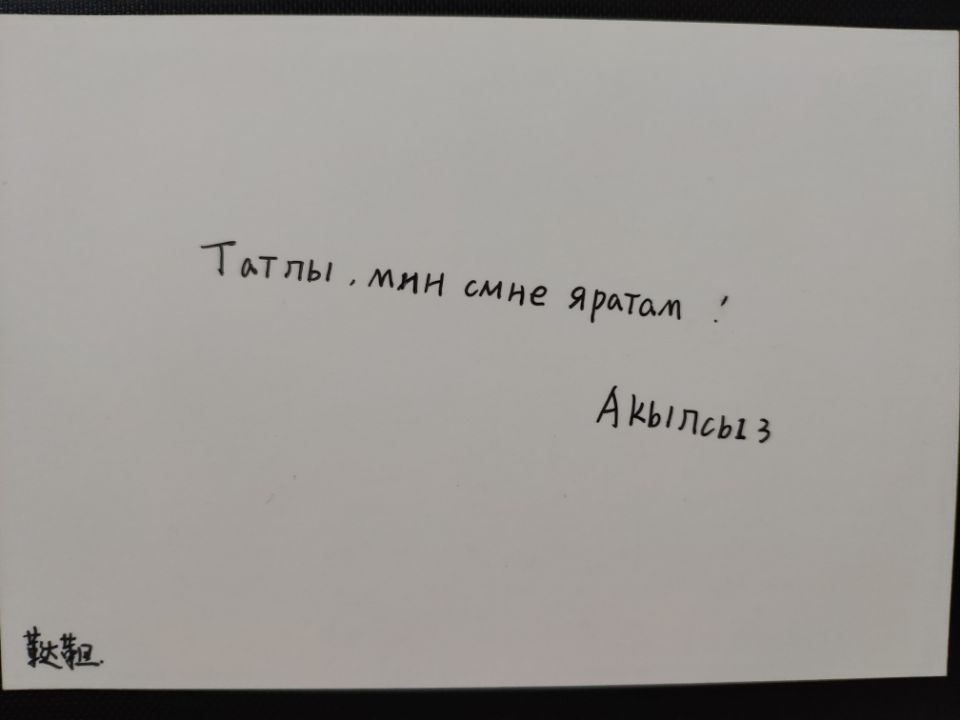 Татлы, мин смне яратам!
Акылсыз
鞑靼.